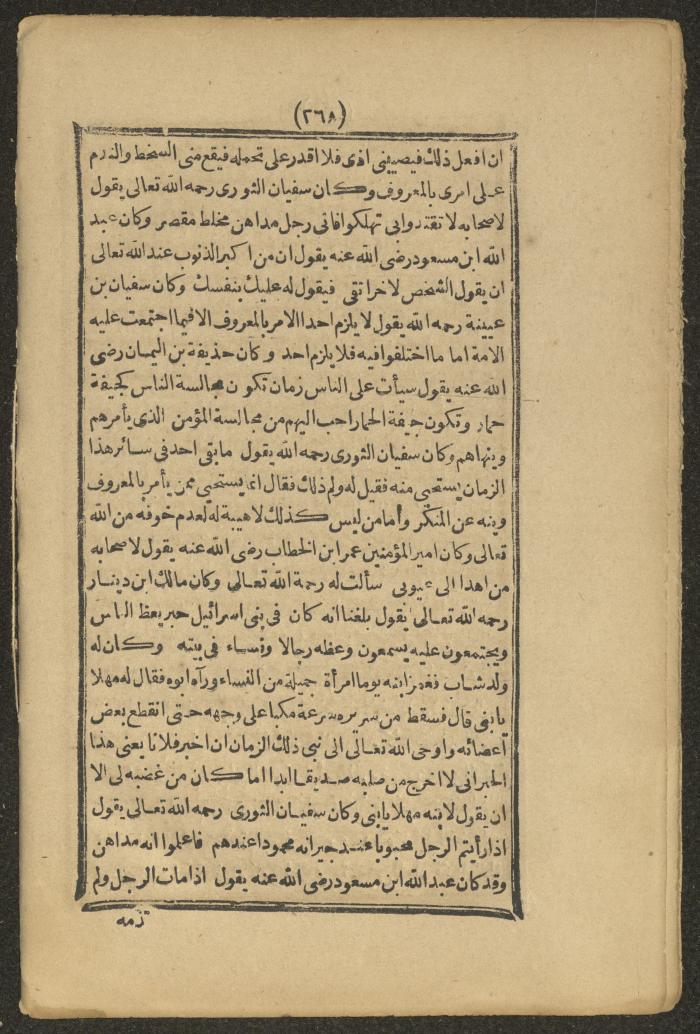 (٢٦٨)
ان افعل ذلك فيصيبنى اذى فلا اقدر على تحمله فيقع منى السخط والندم
على امرى بالمعروف وكان سفيان الثورى رحمه الله تعالى يقول
لاصحابه لا تقتدوا بى تهلكوا فانى رجل مداهن مخلط مقصر وكان عبد
الله ابن مسعود رضى الله عنه يقول ان من اكبر الذنوب عند الله تعالى
ان يقول الشخص لاخر اتقى فيقول له عليك بنفسك وكان سفيان بن
عيينة رحمه الله يقول لا يلزم احدا الامر بالمعروف الا فيما اجتمعت عليه
الامة اما ما اختلفوا فيه فلا يلزم احد وكان حذيفة بن اليمان رضى
الله عنه يقول سيأت على الناس زمان تكون مجالسة الناس كجيفة
حمار وتكون جيفة الحمار احب اليهم من مجالسة المؤمن الذى يأمرهم
وينهاهم وكان سفيان الثورى رحمه الله يقول ما بقى احد فى سائر هذا
الزمان يستحيى منه فقيل له ولم ذلك فقال انما يستحيى ممن يأمر بالمعروف
وينه عن المنكر وأما من ليس كذلك لا هيبة له لعدم خوفه من الله
تعالى وكان امير المؤمنين عمر ابن الخطاب رضى الله عنه يقول لاصحابه
من اهدا الى عيوبى سألت له رحمة الله تعالى وكان مالك ابن دينار
رحمه الله تعالى يقول بلغنا انه كان فى بنى اسرائيل حبر يعظ الناس
ويجتمعون عليه يسمعون وعظه رجالا ونساء فى بيته وكان له
ولد شاب فغمز ابنه يوما امرأة جميلة من النساء ورآه ابوه فقال له مهلا
يا بنى قال فسقط من سريره سرعة مكبا على وجهه حتى انقطع بعض
اعضائه واوحى الله تعالى الى نبى ذلك الزمان ان اخبر فلانا يعنى هذا
الحبر انى لا اخرج من صلبه صديقا ابدا اما كان من غضبه لى الا
ان يقول لابنه مهلا يا بنى وكان سفيان الثورى رحمه الله تعالى يقول
اذا رأيتم الرجل محبوبا عند جيرانه محمودا عندهم فاعلموا انه مداهن
وقد كان عبد الله ابن مسعود رضى الله عنه يقول اذا مات الرجل ولم
تزمه